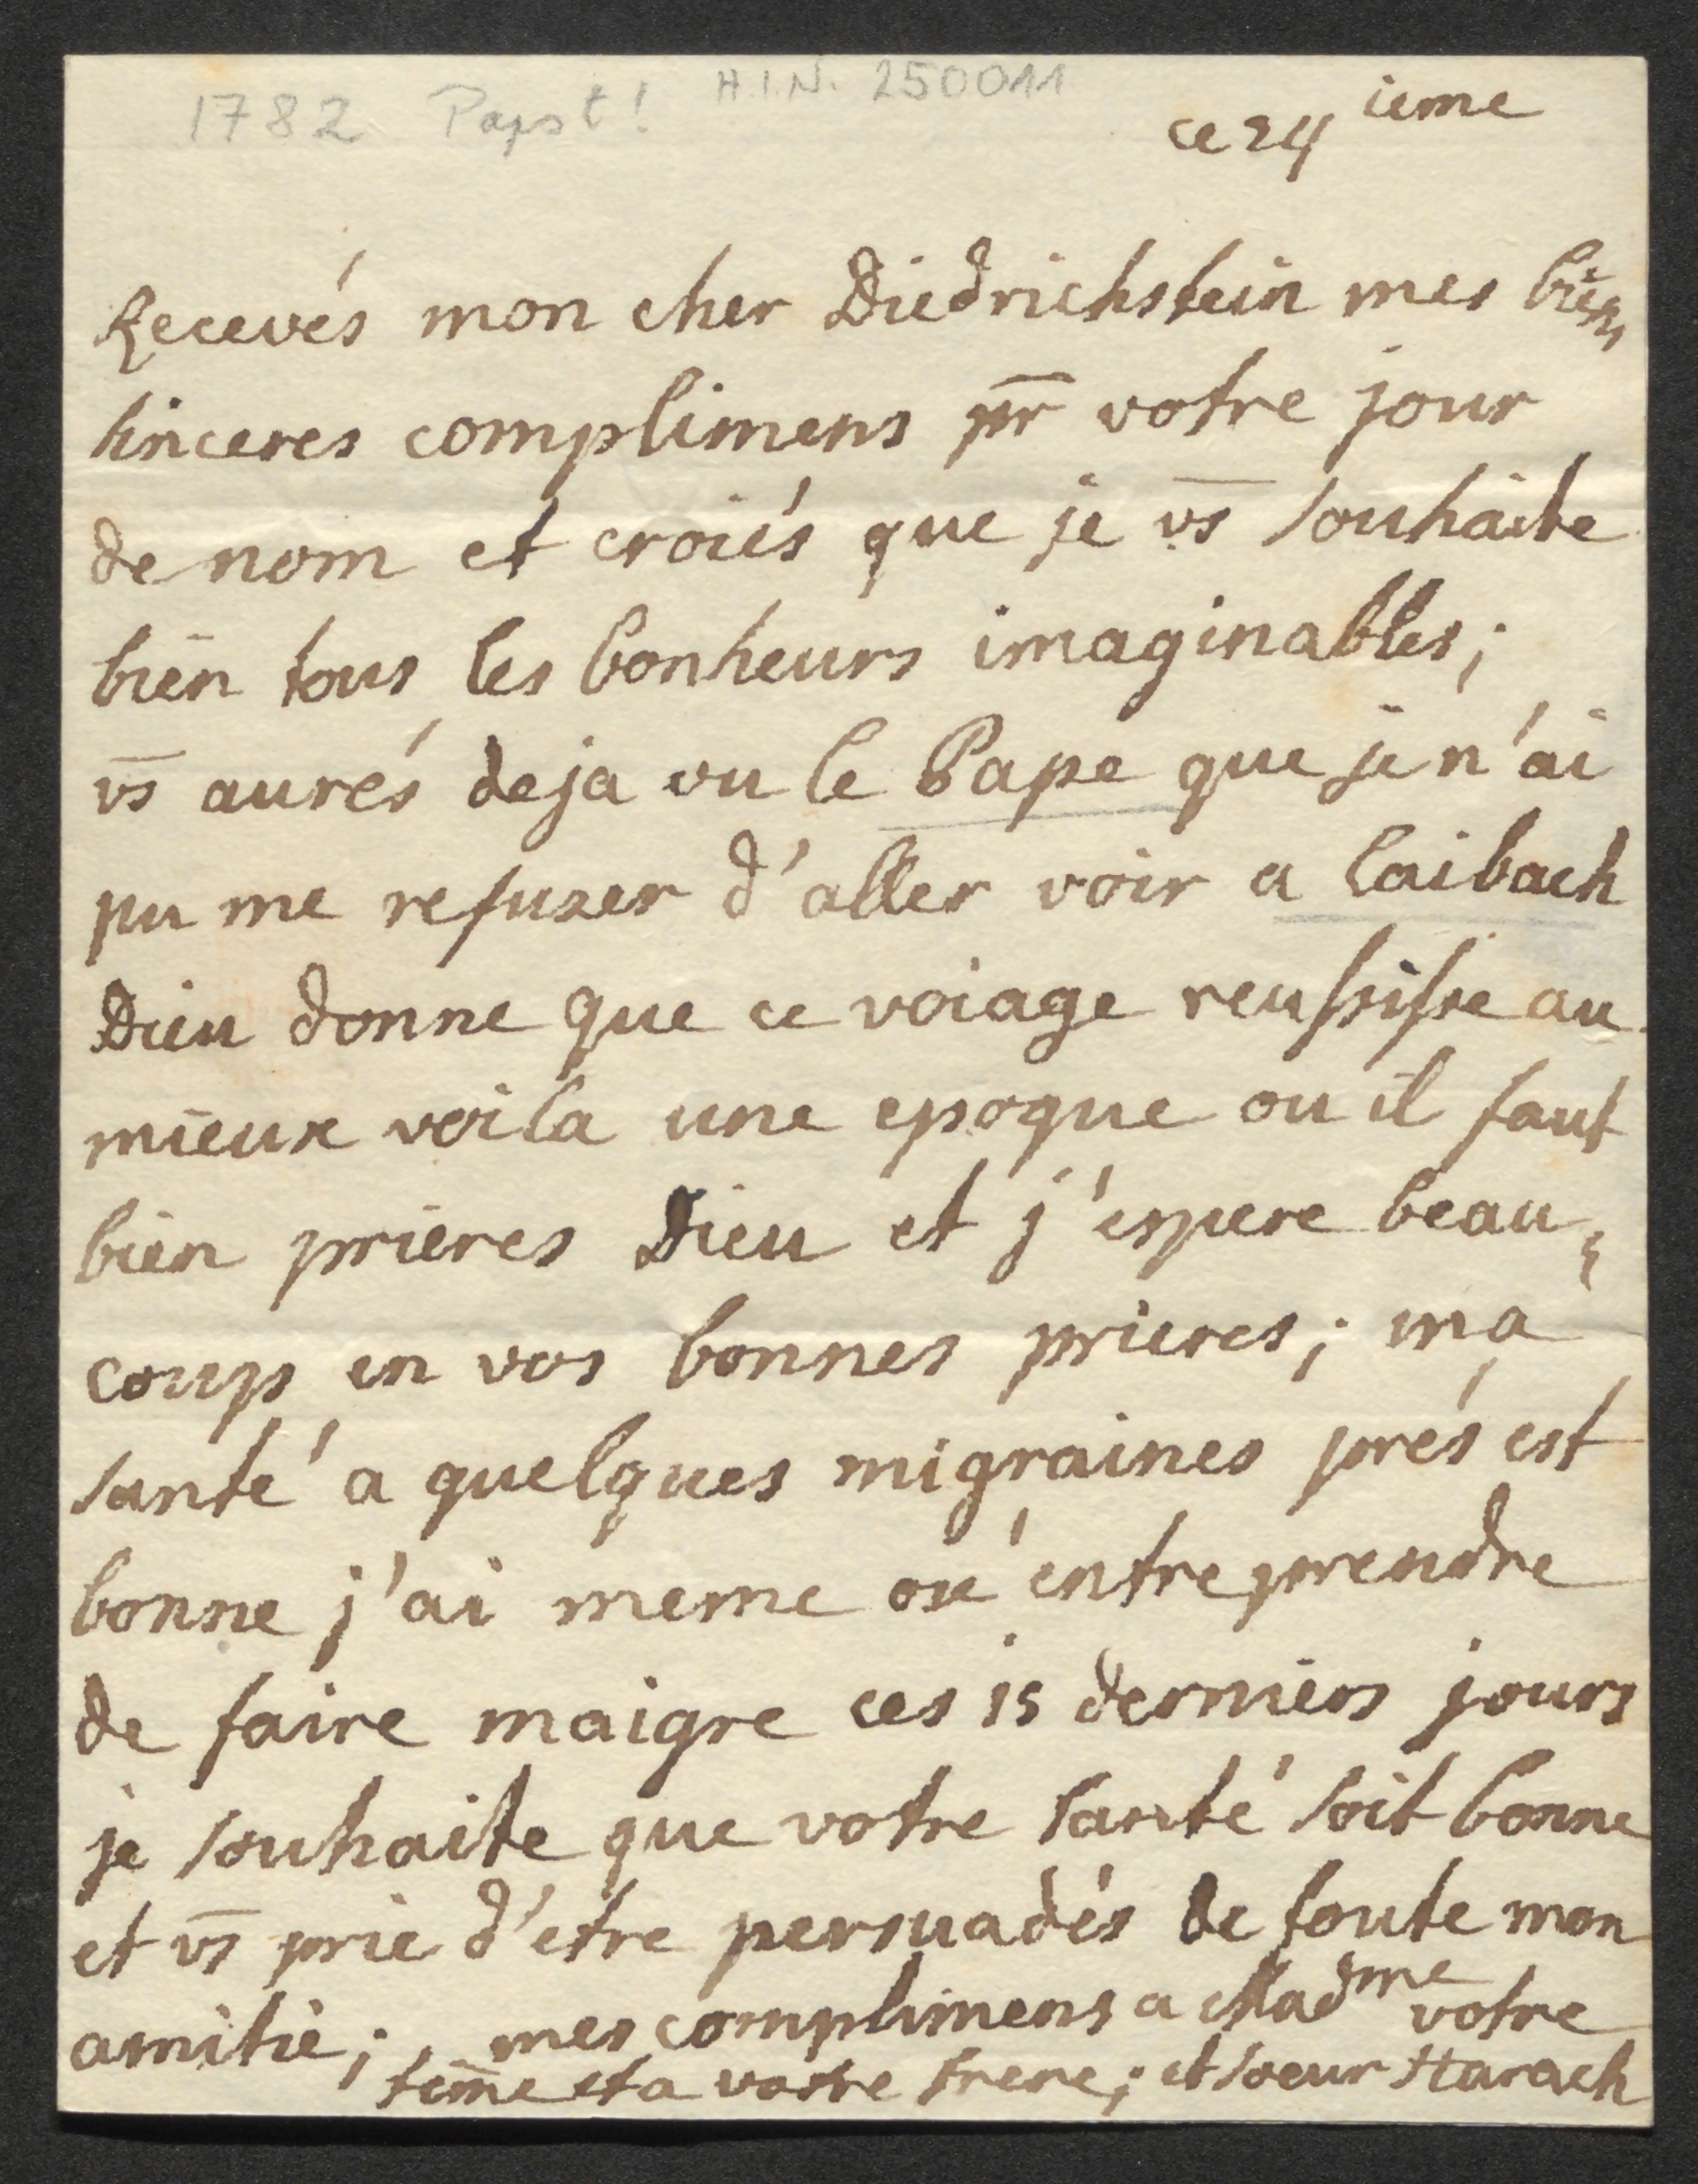 1782 Papst! H.I.N. 250011
ce 24 ieme
Recevés mon cher Diedrichstein mes bien
sinceres complimens pr votre jour
de nom et croiés que je vs souhaite
bien tous les bonheurs imaginables;
vs aurés deja vu le Pape que je n'ai
pu me refuser d'aller voir a Laibach
Dieu donne que ce voiage reussisse au
mieux voila une epoque ou il faut
bien prieres Dieu et j'espere beau,
coup en vos bonnes prieres; ma
santé a quelques migraines prés est
bonne j'ai meme osé entreprendre
de faire maigre ces 15 derniers jours
je souhaite que votre santé soit bonne
et vs prie d'etre persuadés de toute mon
amitié; mes complimens a Madme votre
feme et a votre frere; et soeur Harach